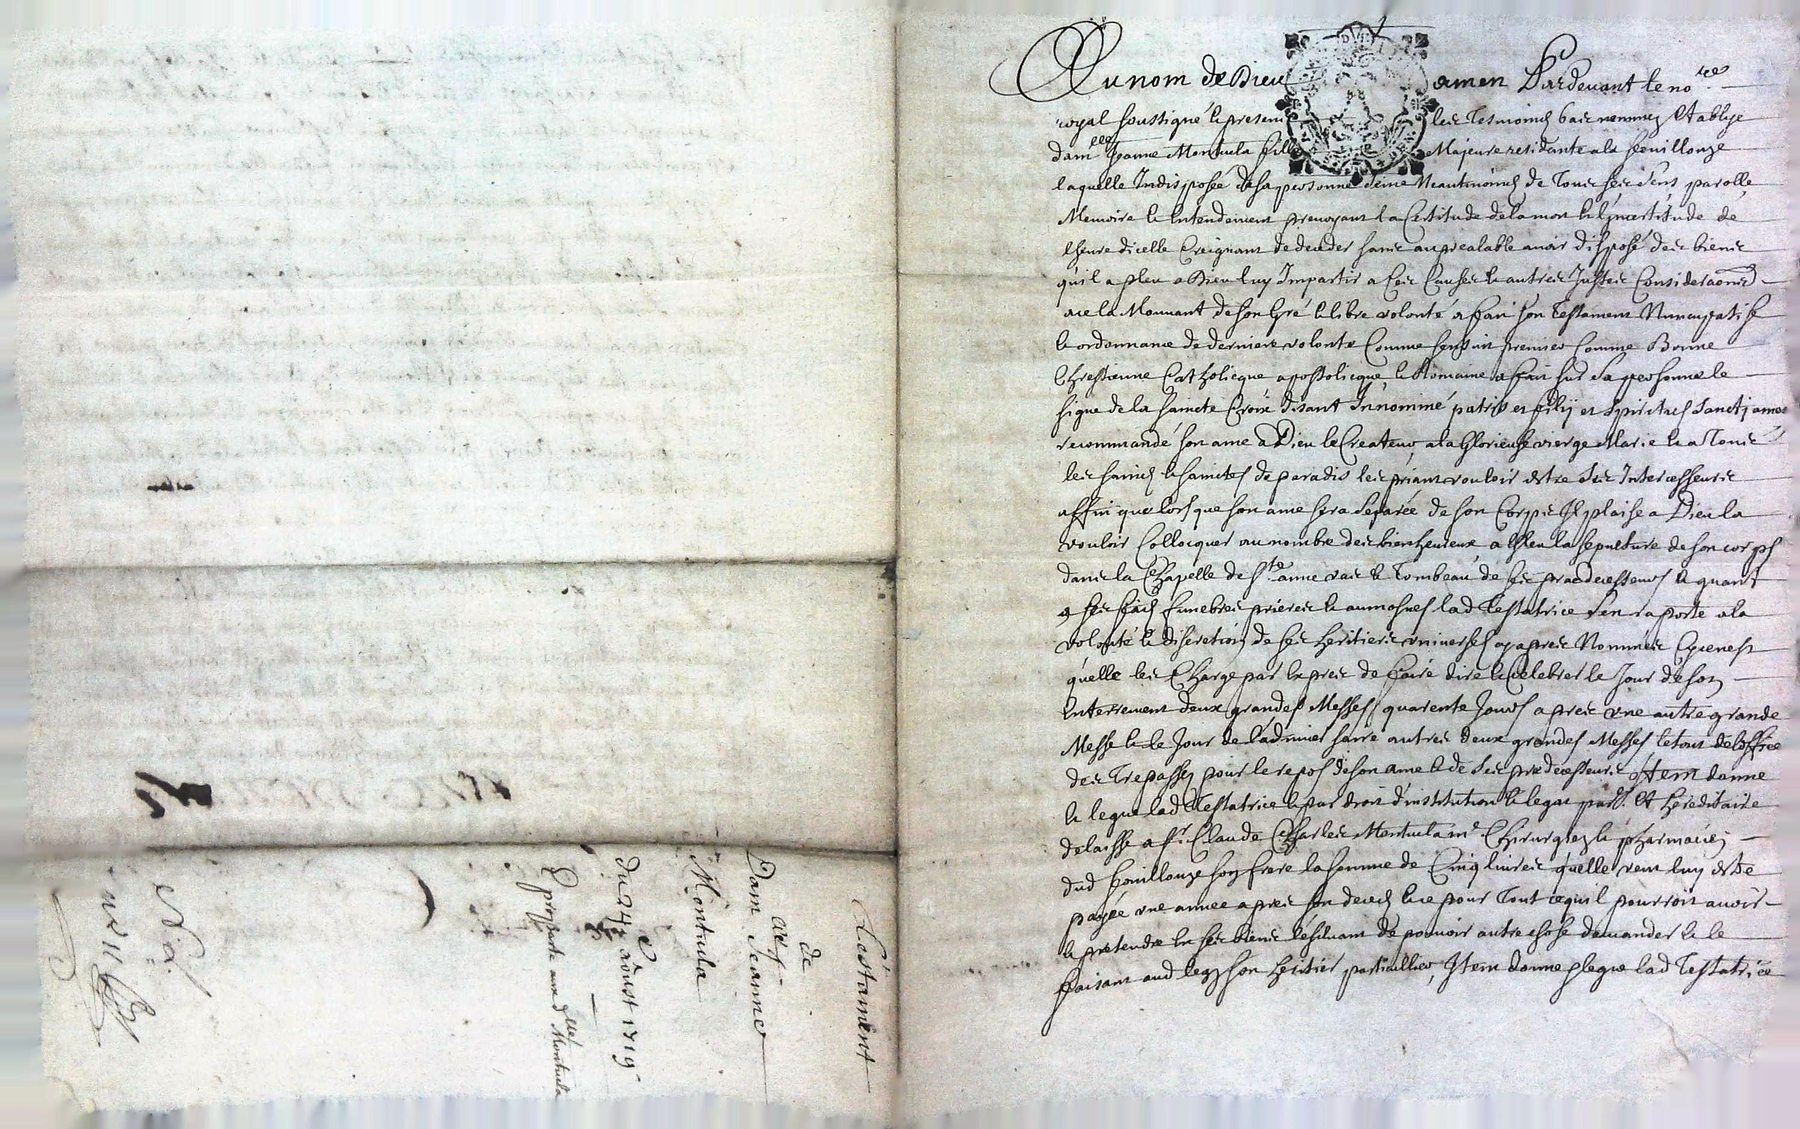 Testament
de
Dam Jeanne
Montula
du 24 aoust 1719
Expizarte aux dlles Montula
Au nom de Dieu amen Pardevant le nore
royal soussigné et presents les Tesmoins bas nommez establye
damlle Jeanne Montula fille Majeure residante a la feuillouze
laquelle Indisposée de sa personne Neantmoins de Tous ses sens parolle
Memoire et entendement prevoyant la Certitude de la mort et l'jncertitude de
lheure dicelle Creignant de deceder sans au prealable avoir disposé des biens
qu'il a pleu a Dieu luy Impartir a Ces Causes et autres Justes Consideraons
ace la Mouvant de son gré et libre volonté a fait son Testament Nuncupatif
et ordonnance de derniere volonté Comme sensuit premier Comme Bonne
Chrestienne Catholicque apostolicque, et Romaine a fait sur sa personne le
signe de la saincte Croix disant Innominé patris et filij et spiritus sanctj amen
recommandé son ame a Dieu le Createur, a la Glorieuse vierge Marie et a Tous
les saincts et sainctes de paradis les priant vouloir estre ses Intercesseurs
affin que lorsque son ame sera separée de son Corps Il plaise a Dieu la
vouloir Collocquer au nombre des bienheureux a Esleu la sepulture de son corps
dans la Chapelle de Ste anne et Tombeau de ses praedecesseurs et quant
a ses frais funebres prieres et aumosnes lad Testatrice s'en raporte a la
volonté et discretion de ses heritiers universels cy apres Nommés
qu'elle les Charge par Expres de faire dire et Celebrer le Jour de son
Enterrement deux grandes Messes quarente Jours apres une autre grande
Messe et le Jour de autres deux grandes Messes le tout de loffice
des Trepassez pour le repos de son ame et de ses predecesseurs Item donne
et legue lad Testatrice et par droit d'institution et legat part. et hereditaire
delaisse a sr Claude Charles Montula me Chirurgien et pharmacien
dud feuillouze son frere la somme de Cinq livres qu'elle veut luy estre
payée une annee apres son deces et ce pour Tout ce qu'il pourroit avoir
et pretendre En ses biens de pouvoir autre chose demander et le
faisant aud legs son heritier particullier, Item donne et legue lad Testatrice